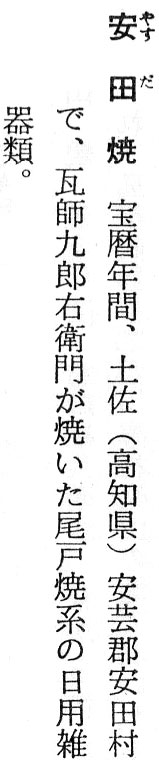 安田焼 宝暦年間、土佐（高知県）安芸郡安田村
で、瓦師九郎右衛門が焼いた尾戸焼系の日用雑
器類。
やすだ